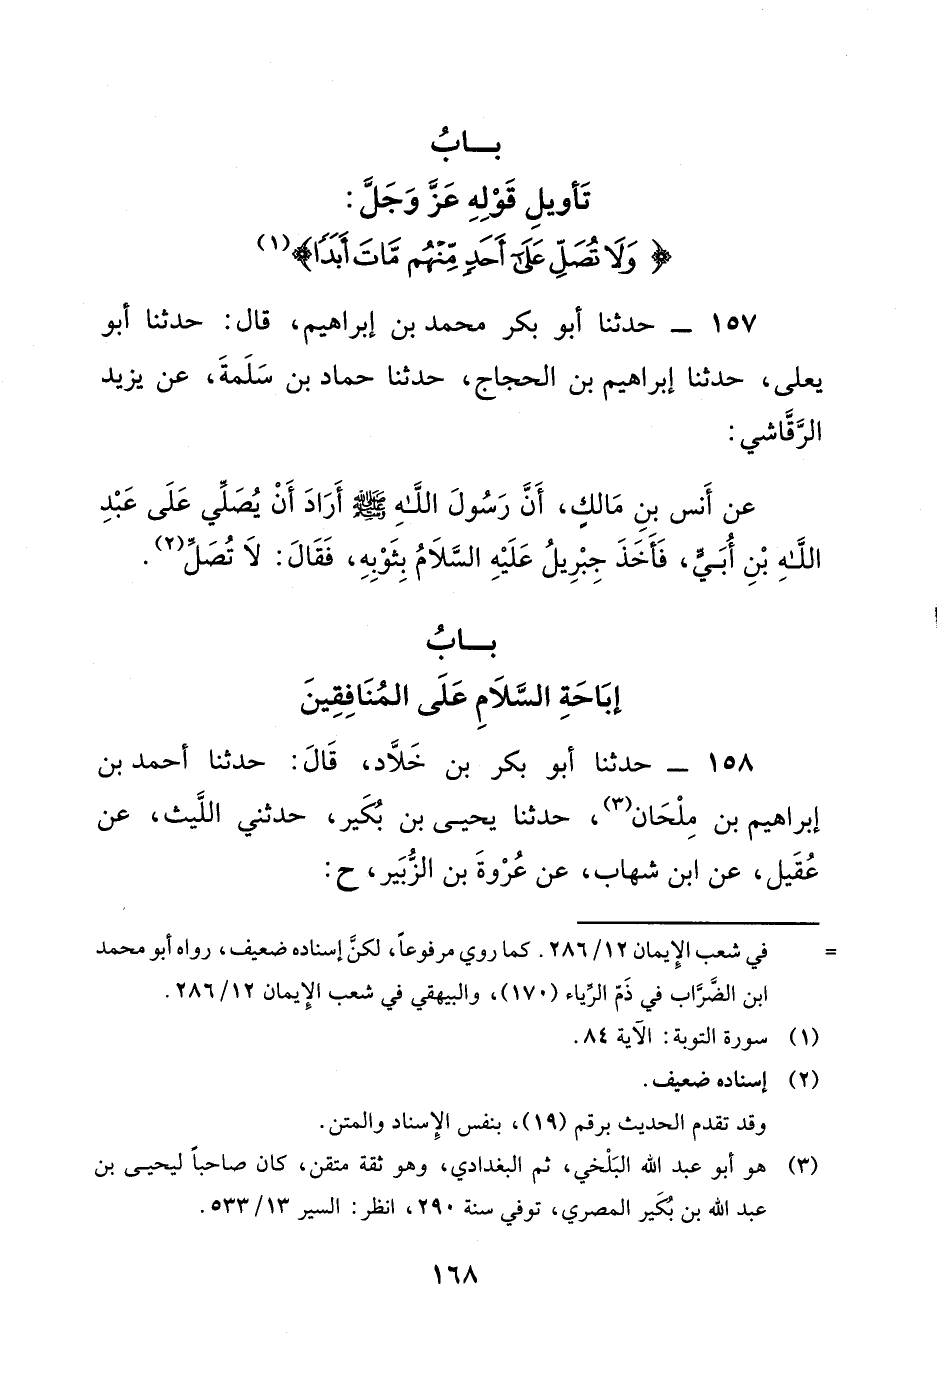 بـــابُ
تَأويلِ قَوْلِهِ عَزَّ وَجَلَّ :
﴿ وَلَا تُصَلِّ عَلَىٰٓ أَحَدٍ مِّنْهُم مَّاتَ أَبَدًا﴾(١)
١٥٧ ــ حدثنا أبو بكر محمد بن إبراهيم، قال: حدثنا أبو
يعلى، حدثنا إبراهيم بن الحجاج، حدثنا حماد بن سَلَمةَ، عن يزيد
الرَّقَّاشي:
عن أَنس بنِ مَالكٍ، أَنَّ رَسُولَ اللَّـٰهِ ﷺ أَرَادَ أَنْ يُصَلِّي عَلَى عَبْدِ
اللَّـٰهِ بْنِ أُبَـيٍّ، فَأَخَذَ جِبْرِيلُ عَلَيْهِ السَّلَامُ بِثَوْبِهِ، فَقَالَ: لاَ تُصَلِّ(٢).
بـــابُ
إبَاحَةِ السَّلَامِ عَلَى المُنَافِقِينَ
١٥٨ ــ حدثنا أبو بكر بن خَلاَّد، قَالَ: حدثنا أحمد بن
إبراهيم بن مِلْحَان(٣)، حدثنا يحيـى بن بُكَير، حدثني اللَّيث، عن
عُقَيل، عن ابن شهاب، عن عُرْوةَ بن الزُّبَير، ح:
= في شعب الإِيمان ١٢/ ٢٨٦. كما روي مرفوعاً، لكنَّ إسناده ضعيف، رواه أبو محمد
ابن الضَّرَّاب في ذَمّ الرِّياء (١٧٠)، والبيهقي في شعب الإِيمان ١٢/ ٢٨٦.
(١) سورة التوبة: الآية ٨٤.
(٢) إسناده ضعيف.
وقد تقدم الحديث برقم (١٩)، بنفس الإِسناد والمتن.
(٣) هو أبو عبد الله البَلْخي، ثم البغدادي، وهو ثقة متقن، كان صاحباً ليحيـى بن
عبد الله بن بُكَير المصري، توفي سنة ٢٩٠، انظر: السير ١٣/ ٥٣٣.
١٦٨